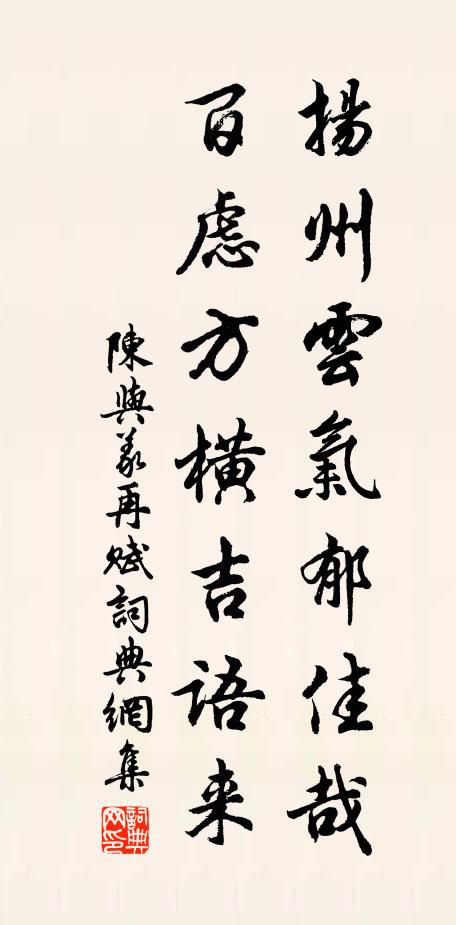 揚州雲氣郁佳哉
百慮方橫吉語来
陳與義再賦詞典網集
詞典网印